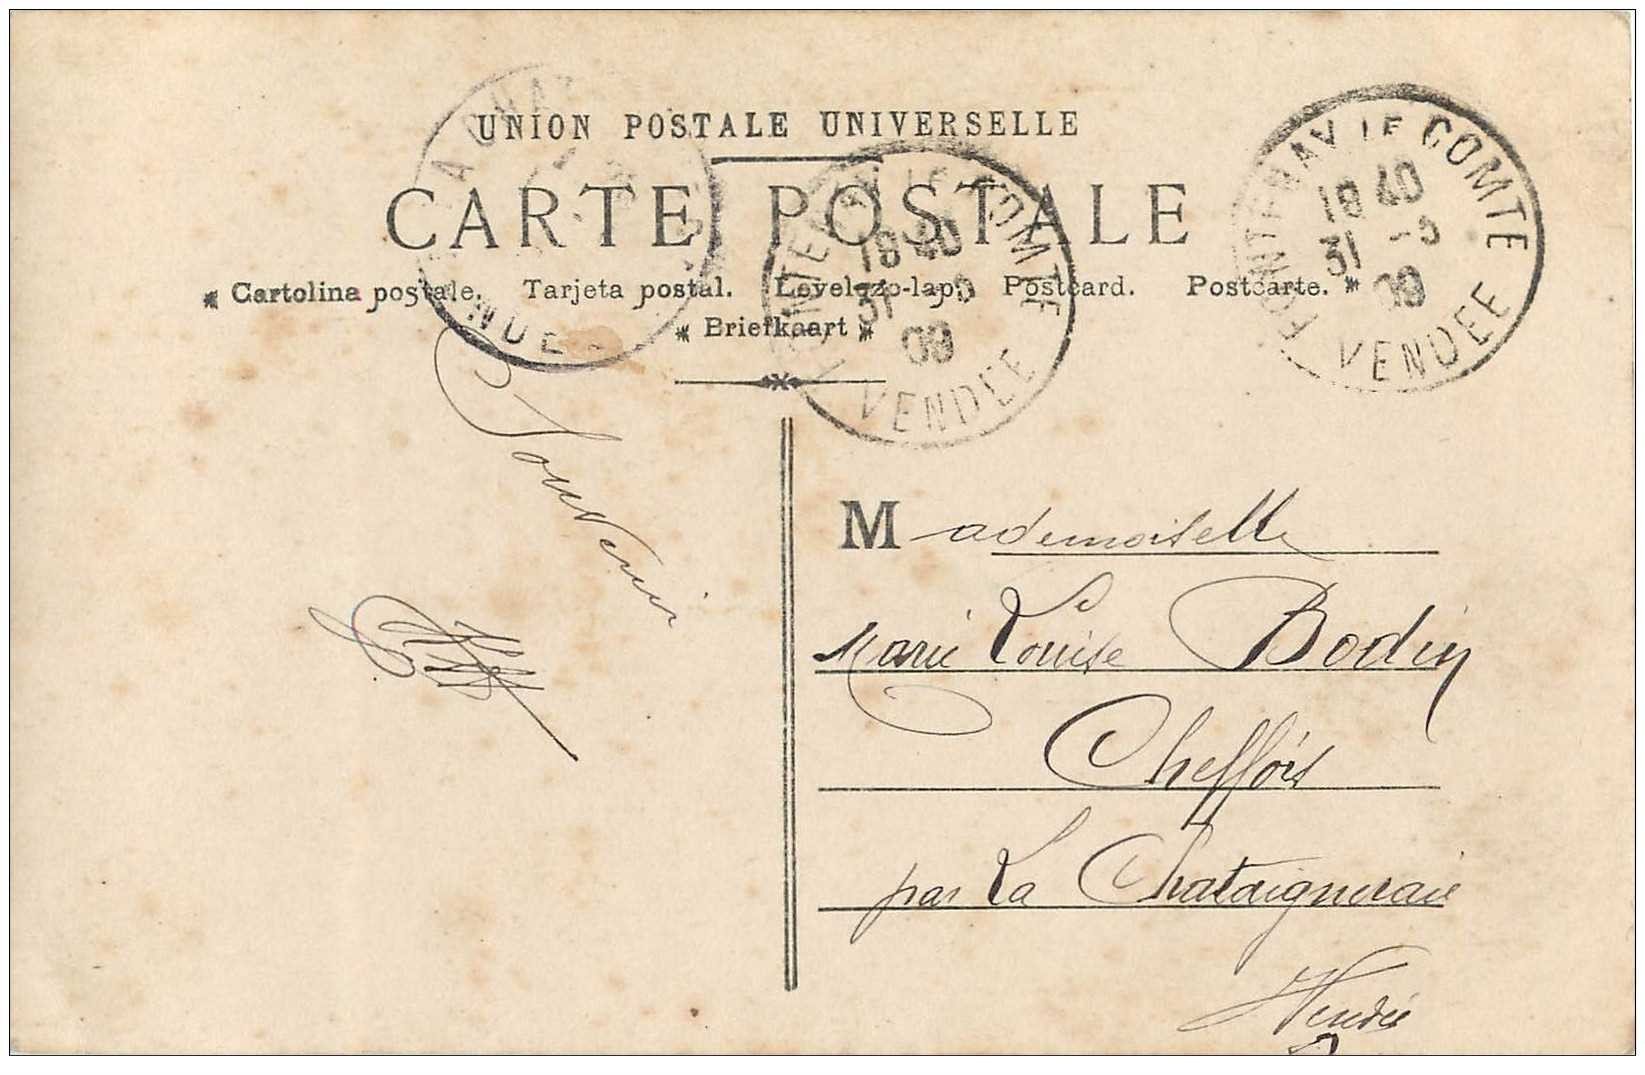 UNION POSTALE UNIVERSELLE
CARTE POSTALE
Cartolina postale. Tarjeta postal. Levelezo-lap. Postcard. Postcarte.
Briefkaart
FONTENAY LE COMTE
18 40
31
09
VENDEE
FONTENAY LE COMTE
18 40
31 -5
09
VENDEE
Souvenir
Mademoiselle
Marie Louise Bodin
Cheffois
par La Chataigneraie
Vendée